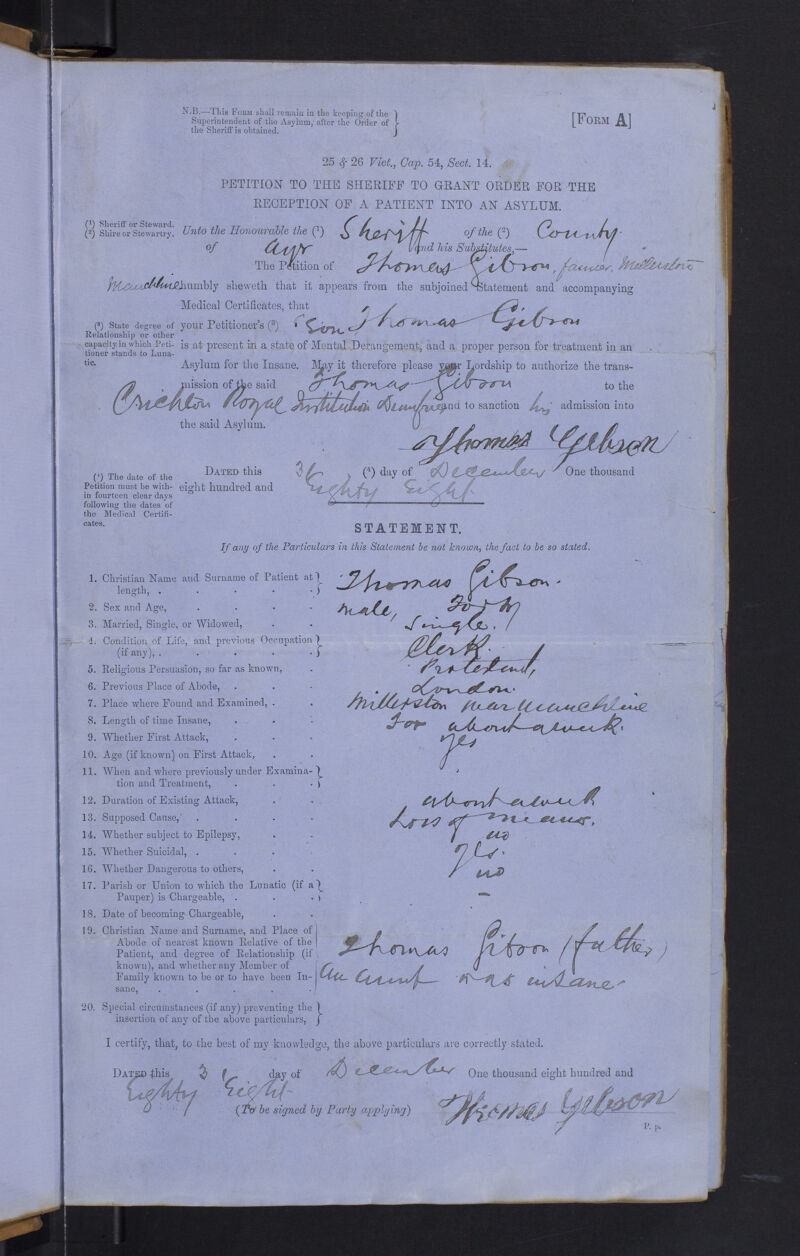 N.B.—This Form shall remain in the keeping of the
Superintendent of the Asylum, after the Order of
the Sheriff is obtained.
[Form A]
25 & 26 Vict., Cap. 54, Sect. 14.
PETITION TO THE SHERIFF TO GRANT ORDER FOR THE
RECEPTION OF A PATIENT INTO AN ASYLUM.
(1) Sheriff or Steward.
(2) Shire or Stewartry.
Unto the Honourable the (1) Sheriff of the (2) County
of Ayr and his Substitutes,—
The Petition of Thomas Gibson, farmer, Millerston
Mauchline humbly sheweth that it appears from the subjoined Statement and accompanying
Medical Certificates, that
(3) State degree of
Relationship or other
capacity in which Peti-
tioner stands to Luna-
tic.
your Petitioner's (3) Son Thomas Gibson
is at present in a state of Mental Derangement, and a proper person for treatment in an
Asylum for the Insane. May it therefore please your Lordship to authorize the trans-
mission of the said Thomas Gibson to the
Crichton Royal Institution Dumfries and to sanction his admission into
the said Asylum.
Thomas Gibson
(4) The date of the
Petition must be with-
in fourteen clear days
following the dates of
the Medical Certifi-
cates.
Dated this 31 (4) day of December One thousand
eight hundred and Eighty Eight
STATEMENT.
If any of the Particulars in this Statement be not known, the fact to be so stated.
1. Christian Name and Surname of Patient at
length, . Thomas Gibson.
2. Sex and Age, male, Forty
3. Married, Single, or Widowed, Single.
4. Condition of Life, and previous Occupation
(if any), . Clerk.
5. Religious Persuasion, so far as known, Protestant,
6. Previous Place of Abode, . London.
7. Place where Found and Examined, . Millerston near Mauchline
8. Length of time Insane, For about a week.
9. Whether First Attack, Yes
10. Age (if known) on First Attack,
11. When and where previously under Examina-
tion and Treatment,
12. Duration of Existing Attack, about a week
13. Supposed Cause, Loss of means.
14. Whether subject to Epilepsy, no
15. Whether Suicidal, . Yes.
16. Whether Dangerous to others, no
17. Parish or Union to which the Lunatic (if a
Pauper) is Chargeable, . –
18. Date of becoming Chargeable,
19. Christian Name and Surname, and Place of
Abode of nearest known Relative of the
Patient, and degree of Relationship (if
known), and whether any Member of
Family known to be or to have been In-
sane, .
Thomas Gibson (father)
An aunt was insane
20. Special circumstances (if any) preventing the
insertion of any of the above particulars,
I certify, that, to the best of my knowledge, the above particulars are correctly stated.
Dated this 31 day of December One thousand eight hundred and
Eighty Eight
(To be signed by Party applying) Thomas Gibson
P. p.